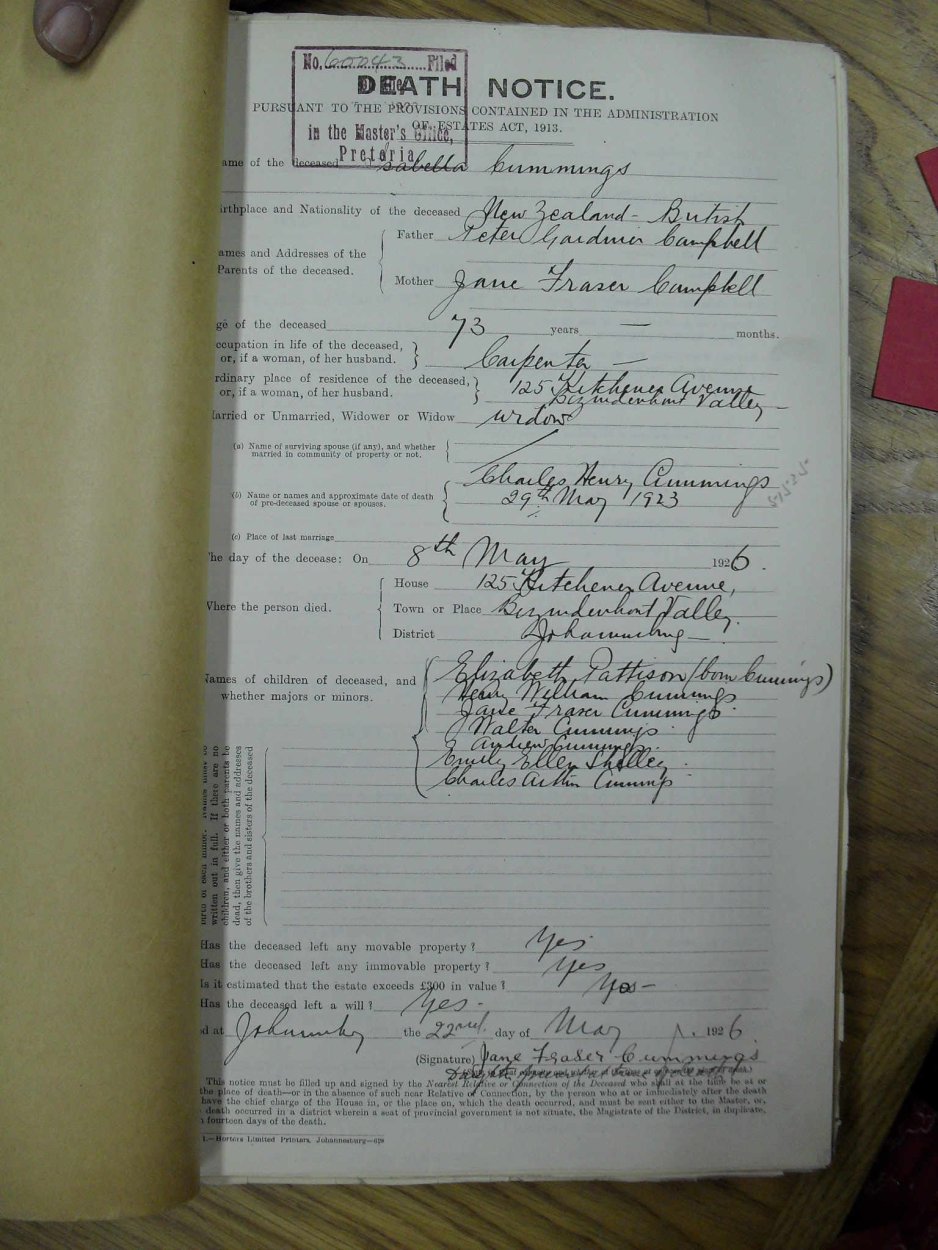 No. 60043 Filed
DEATH NOTICE.
PURSUANT TO THE PROVISIONS CONTAINED IN THE ADMINISTRATION
OF ESTATES ACT, 1913.
in the Master's Office,
Pretoria
ame of the deceased sabella Cummings
irthplace and Nationality of the deceased New Zealand - British
ames and Addresses of the Parents of the deceased.
Father Peter Gardiner Campbell
Mother Jane Fraser Campbell
ge of the deceased 73 years — months.
ccupation in life of the deceased, or, if a woman, of her husband. Carpenter —
rdinary place of residence of the deceased, or, if a woman, of her husband. 125 Kitchener Avenue
Bezuidenhout Valley —
arried or Unmarried, Widower or Widow widow
(a) Name of surviving spouse (if any), and whether married in community of property or not.
(b) Name or names and approximate date of death of pre-deceased spouse or spouses. Charles Henry Cummings
29th May 1923
(c) Place of last marriage
he day of the decease: On 8th May 1926.
Where the person died.
House 125 Kitchener Avenue,
Town or Place Bezuidenhout Valley.
District Johannesburg —
Names of children of deceased, and whether majors or minors.
Elizabeth Pattison (born Cummings)
Henry William Cummings
Jane Fraser Cummings.
Walter Cummings
Andrew Cummings.
Emily Ellen Shelley.
Charles Arthur Cummings
birth of each minor. Names must be
written out in full. If there are no
children, and either or both parents be
dead, then give the names and addresses
of the brothers and sisters of the deceased
Has the deceased left any movable property? Yes.
Has the deceased left any immovable property? Yes
Is it estimated that the estate exceeds £300 in value? Yes —
Has the deceased left a will? Yes -
d at Johannesburg the 22nd. day of May 1926
(Signature) Jane Fraser Cummings
This notice must be filled up and signed by the Nearest Relative or Connection of the Deceased who shall at the time be at or
the place of death—or in the absence of such near Relative or Connection, by the person who at or immediately after the death
have the chief charge of the House in, or the place on, which the death occurred, and must be sent either to the Master, or,
death occurred in a district wherein a seat of provincial government is not situate, the Magistrate of the District, in duplicate,
fourteen days of the death.
1.—Hortors Limited Printers, Johannesburg—